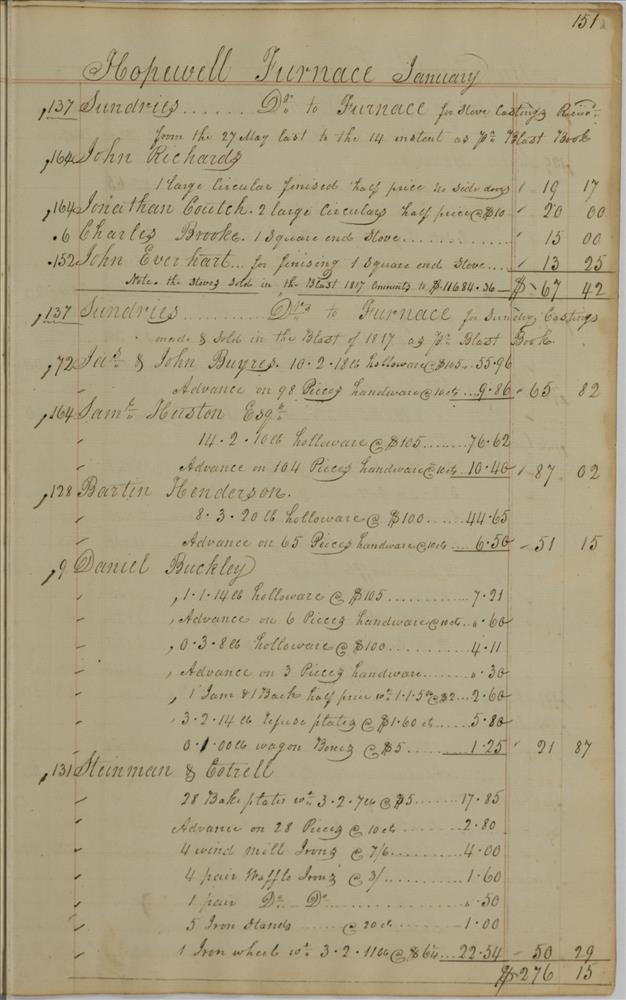 151
Hopewell Furnace January
137 Sundries....... Drs to Furnace for Stove Castings
from the 27 May last to the 14 instent as pr Blast Book
164 John Richards
1 large Circular finised half price 19 17
164 Jonathan Coutch. 2 large Circulars half price @ $10 20 00
6 Charles Brooke. 1 Square end Stove............ 15 00
152 John Everhart... for finising 1 Square end Stove.... 13 25
Note. the Stoves Sold in the Blast 1817 amounts to $11684.36 $ 67 42
137 Sundries........... Drs to Furnace for Sundry Castings
made & Sold in the Blast of 1817 as pr Blast Book
72 Jas & John Buyres. 10.2.18 lb holloware @ $105.. 55.96
Advance on 98 Pieces handware @ 10 cts... 9.86 65 82
164 Saml Huston Esqr
14.2.10 lb holloware @ $105........ 76.62
Advance on 104 Pieces handware @ 10 cts.. 10.40 87 02
128 Bartin Henderson.
8.3.20 lb holloware @ $100...... 44.65
Advance on 65 Pieces handware @ 10 cts.... 6.50 51 15
9 Daniel Buckley
1.1.14 lb holloware @ $105............ 7.21
Advance on 6 Pieces handware @ 10 cts.. .60
0.3.8 lb holloware @ $100........... 4.11
Advance on 3 Pieces handware....... .30
1 Jam & 1 Back half price wt 1.1.5 lb @ $2... 2.60
3.2.14 lb refuse plates @ $1.60 ct..... 5.80
0.1.00 lb wagon Boxes @ $5........ 1.25 21 87
131 Steinman & Cotrell
28 Bake plates wt 3.2.7 lb @ $5....... 17.85
Advance on 28 Pieces @ 10 cts......... 2.80
4 wind mill Irons @ 7/6.......... 4.00
4 pair Waffle Irons @ 3/........... 1.60
1 pair Do Do............ .50
5 Iron Stands ...... @ 20 ct....... 1.00
1 Iron wheel wt 3.2.11 lb @ $6¼... 22.54 50 29
$ 276 15